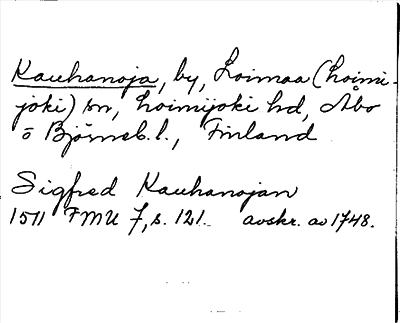 Kauhanoja, by, Loimaa (Loimi-
joki) sn, Loimijoki hd, Åbo
o Björneb. l., Finland
Sigfred Kauhanojan
1511 FMU 7, s. 121. avskr. av 1748.